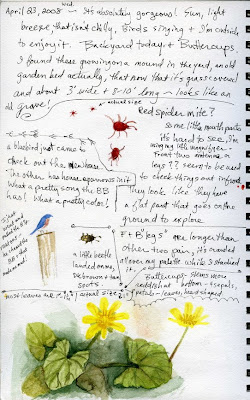 April 23, 2008 Wed. - It's absolutely gorgeous! Sun, light
breeze, that isn't chilly, Birds singing + I'm outside
to enjoy it. Backyard today + Buttercups
I found these growing on a mound in the yard, an old
garden bed actually, that now that it's grass covered
and about 3' wide + 8-10' long - looks like an
old grave!
actual size
Red spider mite?
some little mouth parts
it's hard to see, I'm
using magnifier.
Front two antenna or
legs? I seem to be used
to check things out in front
They look like they have
a flat paint that goes on the
ground to explore
a bluebird just came to
check out the new house.
The other has house sparrows in it
What a pretty song the BB
has! What a pretty color!
F + B "legs" are longer than
other two pair, it's crawled
all over my palette while I studied
it.
a little beetle
landed on me,
DK brown + tan
spots
Buttercups - stems more
reddish at bottom - sepals,
petals - leaves, heart shaped
most leaves are
actual size